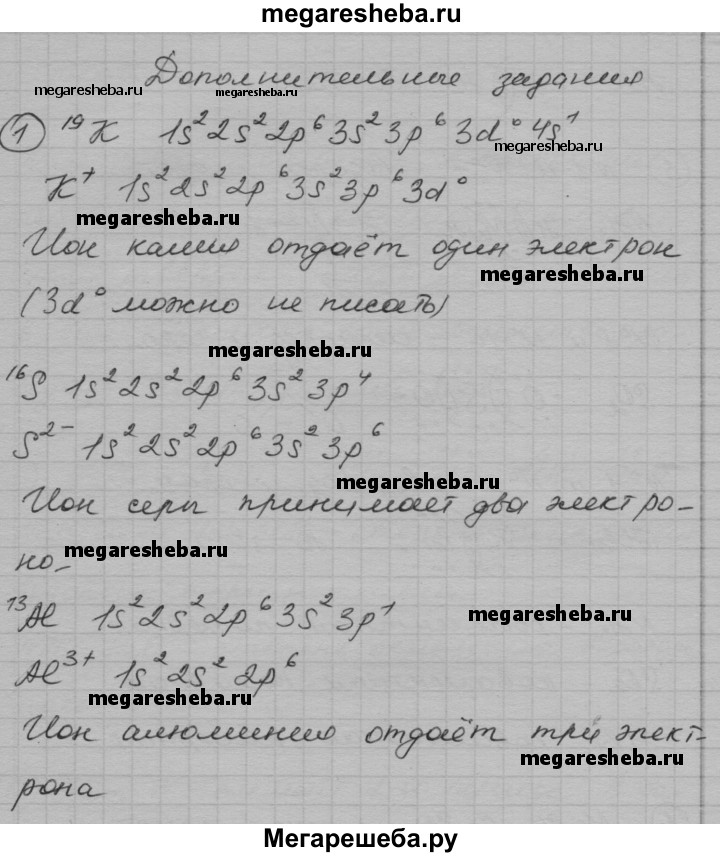 megaresheba.ru
Дополнительные задания
megaresheba.ru megaresheba.ru
1 ¹⁹K 1s² 2s² 2p⁶ 3s² 3p⁶ 3d⁰ 4s¹
megaresheba.ru
K⁺ 1s² 2s² 2p⁶ 3s² 3p⁶ 3d⁰
megaresheba.ru
Ион калия отдаёт один электрон
megaresheba.ru
(3d⁰ можно не писать)
megaresheba.ru
¹⁶S 1s² 2s² 2p⁶ 3s² 3p⁴
S²⁻ 1s² 2s² 2p⁶ 3s² 3p⁶
megaresheba.ru
Ион серы принимает два электро-
но-
megaresheba.ru
¹³Al 1s² 2s² 2p⁶ 3s² 3p¹
megaresheba.ru
Al³⁺ 1s² 2s² 2p⁶
megaresheba.ru
Ион алюминия отдаёт три элект-
megaresheba.ru
рона
Мегарешеба.ру